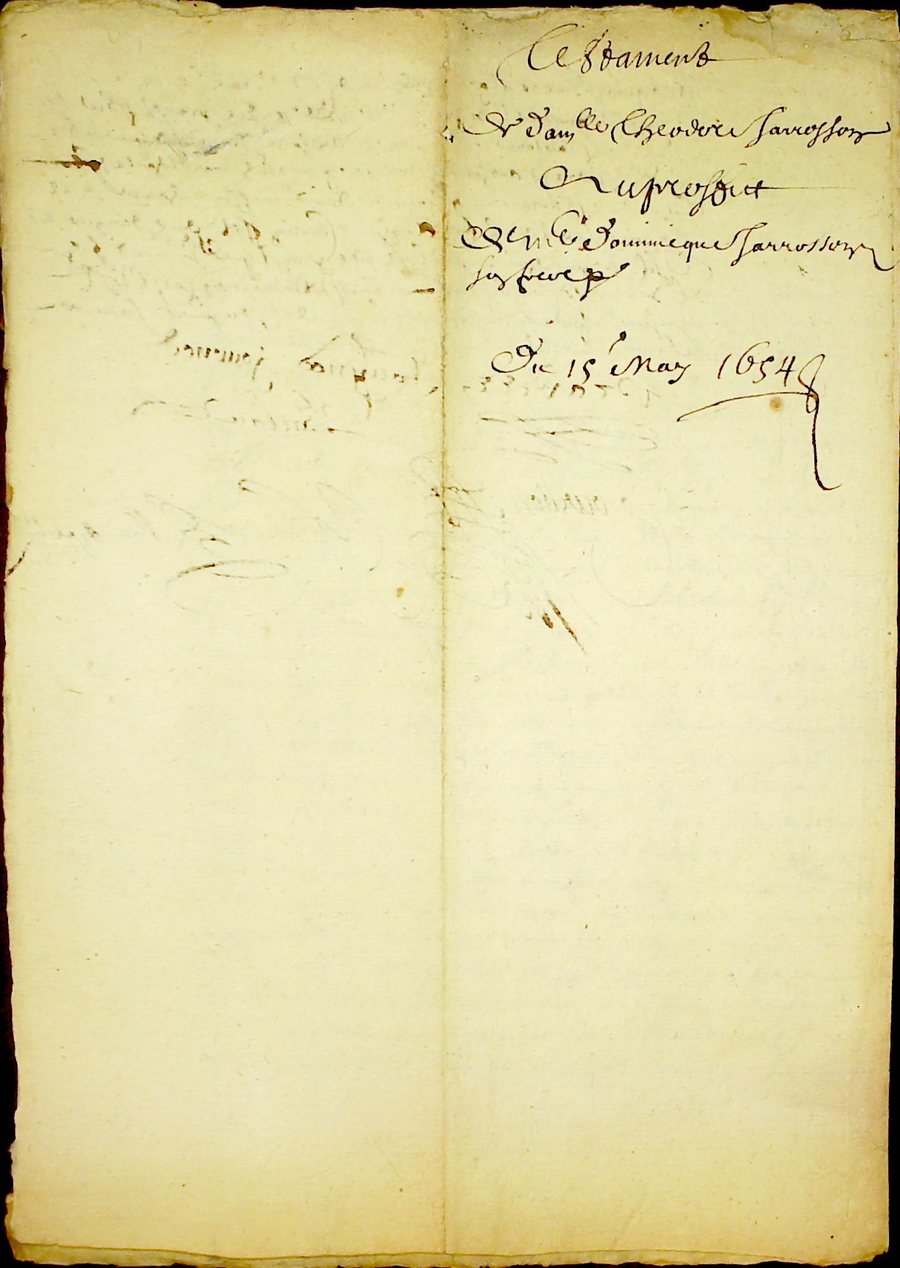 Testament
de dam lle Theodore Sarrosson
Au profict
de me Dominicque Sarrosson
son frere
Du 15 May 1654